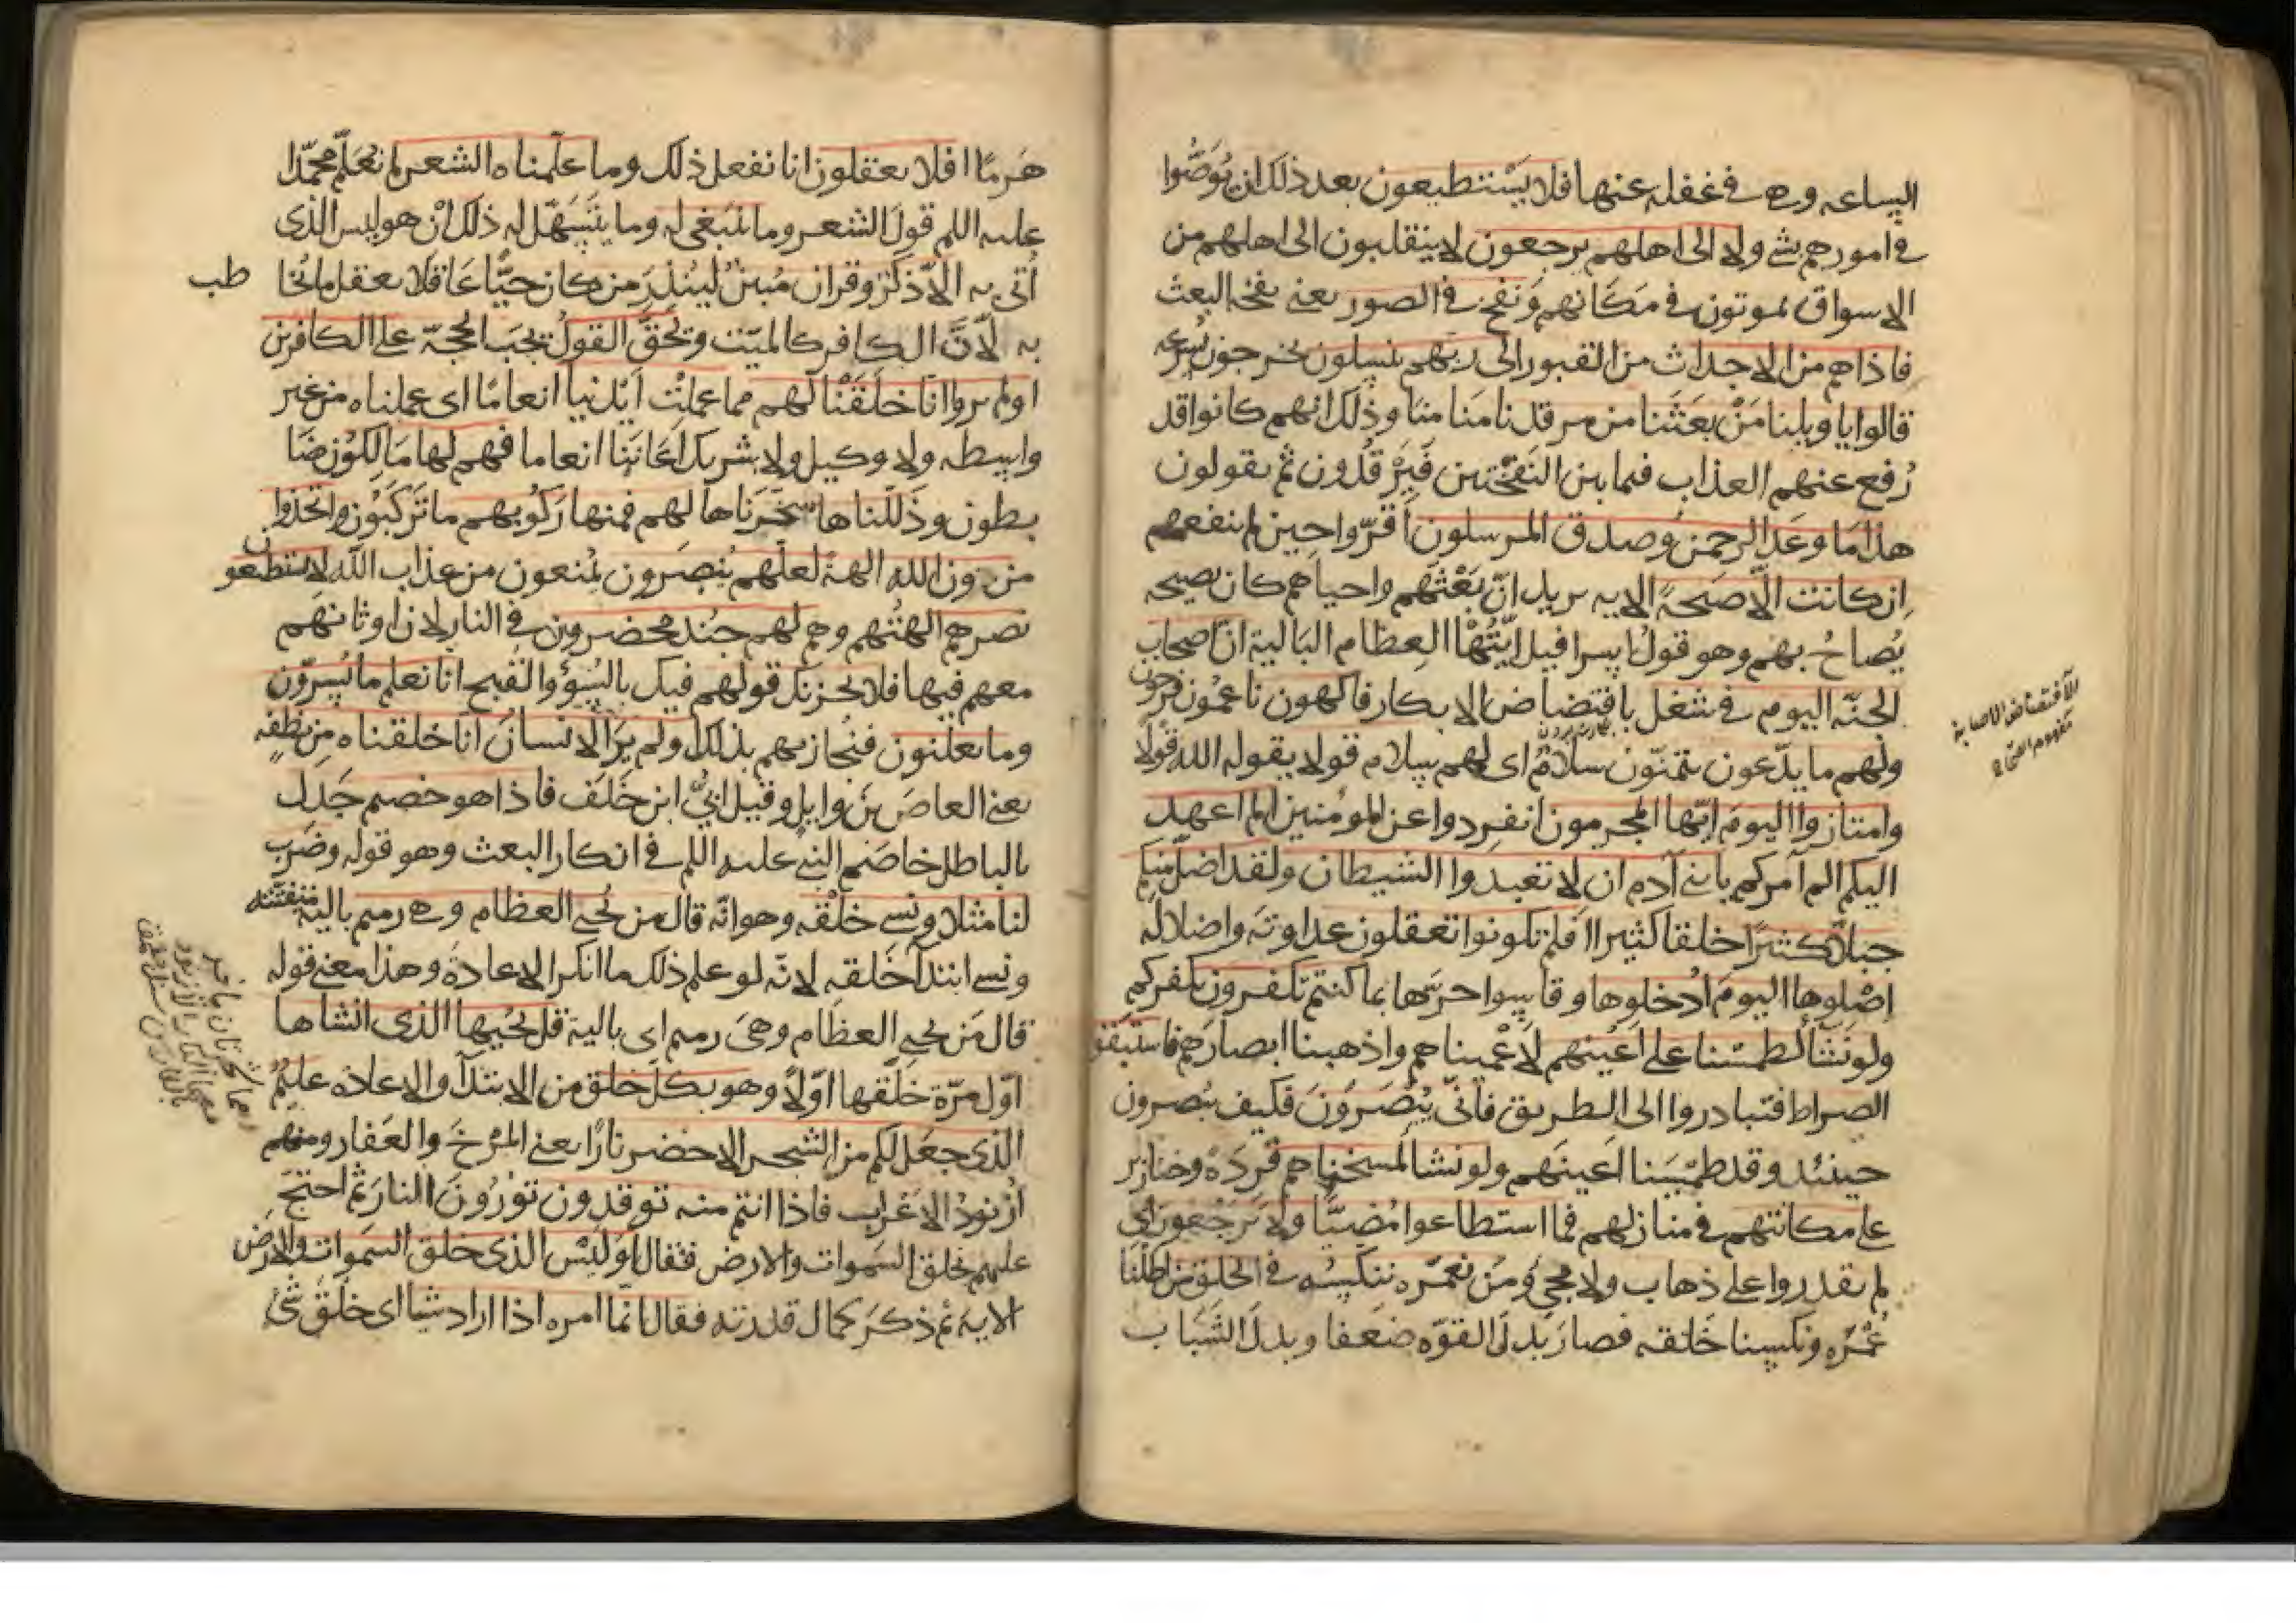 الساعه وهم في غفله عنها فلا يستطيعون بعد ذلك ان يُوَصُّوا
في امورهم بشي ولا الى اهلهم يرجعون لا ينقلبون الى اهلهم من
الاسواق يموتون في مكانهم ونفخ في الصور يعني نفخه البعث
فاذاهم من الاجداث من القبور الى ربهم ينسلون يخرجون بسرعه
قالوا يا ويلنا مَنْ بعَثَنا من مرقدنا مَنامنا وذلك انهم كانوا قد
رُفع عنهم العذاب فيما بين النفختين فَيَرْقُدون ثم يقولون
هذا مَا وعَد الرحمن وصدق المرسلون اَقرّوا حين لم ينفعهم
اِن كانت الّا صَيحةً الايه يريد انّ بَعْثَهم واحياهم كان بصيحه
يُصاحُ بهم وهو قولُ اسرافيل ايّتُها العِظام البَالية انّ اصحاب
الجنّه اليوم في شغل بافتضاض الابكار فاكهون ناعمُون فرحون
ولهم ما يدّعون يتمنّون سلامٌ اى لهم سلام قولا يقوله الله قولًا
وامتازوا اليومَ ايّها المجرمون انفرِدوا عن المومنين الم اعهد
اليكم الم آمركم يابني آدم ان لا تعبدوا الشيطان ولقد اضلّ منكم
جبلّا كثيرًا خلقا كثيرا افلم تكونوا تعقلون عداوته واضلاله
اصْلوها اليومَ اُدخلوها وقاسوا حرّها بما كنتم تكفرون بكفركم
ولو نشَأ لطمسْنا على اَعْيُنهم لَاَعْميناهم واذهبنا ابصارهم فاستَبقوا
الصراط فتبادروا الى الطريق فانّى يُبْصَرونَ فكيف يبصرون
حينئد وقد طمسَنا اَعينَهم ولو نشا لمسخناهم قرَدَةً وخنازير
على مكانتهم في منازلهم فما استطاعوا مُضِيًّا ولا يَرْجعون اى
لم يقدروا على ذهاب ولا مجي وَمنْ نعمّره ننكسْه في الخلق من اطلنا
عُمْرَه ونكسنا خَلقه فصار بَدلَ القوّه ضَعفا وبدلَ الشَبَاب
الافتضاض الاصابة
هَرمًا افلا يعقلون انا نفعل ذلك وما علّمناه الشعر لم نُعَلّم محمّدا
عليه اللم قولَ الشعر وما ينبغى له وما يتَسَهّل له ذلك انْ هو ليس الذى
اُتى به الّا ذكرٌ وقران مُبينٌ ليُنذِرَ من كان حيًّا عَاقلا يعقل ما يُخا
طب
به لاَنّ الكافر كالميّت ويَحقّ القولُ يجبَ الحجّه على الكافرين
اولم يروا انّا خلَقْنا لهم مما عملتْ اَيْدينا انعامًا اى عملناه من غير
واسطه ولا وكيل ولا شريك اَعَانَنا انعاما فهم لها مَالكوُن ضَا
بطون وذَلّلناها سَخّرناها لهم فمنها رَكُوبهم ما تَركَبُون واتخذوا
من دون الله الهةً لعلّهم يُنصَرون يُمنعون من عذاب الله لا يستطيعون
نصرهم الهتُهم وهم لهم جُند محضرون في النار لان اوثانهم
معهم فيها فلا يحزنك قولهم فيك بالسُوْ والقبح انا نعلم ما يُسِرّون
وما يعلنون فنُجازيهم بذلك ولم يَرَ الانسانُ انّا خلقناه مِن نطفةٍ
يعني العاصَ بنَ وايل وقيل ابيّ ابن خَلَف فاذا هو خصم جَدِل
بالباطل خاصَم النبي عليه اللم في انكار البعث وهو قوله وضَرب
لنا مثلا ونسي خلْقَه وهوانّه قال من يُحي العظام وهي رميم بالية متفتّته
ونسي ابتدآ خَلقه لانّه لو علم ذلك ما انكر الاعادةَ وهذا معني قوله
قال مَن يُحي العظام وهيَ رميم اى بالية قل يُحييها الذى انشاها
اوّل مرّة خلَقها اوّلاً وهو بكلّ خلق من الابتدآ والاعاده عليمٌ
الذى جعَل لكم من الشجر الاخضر نارًا يعني المرْخَ والعَفار ومنهم
ازْنودُ الاعْراب فاذا انتم منه توقدون تورُونَ النار ثم احتجّ
عليهم بخلق السموات والارض فقال اَوَليْس الذى خلق السموات والارض
الايه ثم ذكَر كمال قدرته فقال انّما امره اذا اراد شيا اى خلْقَ شئ